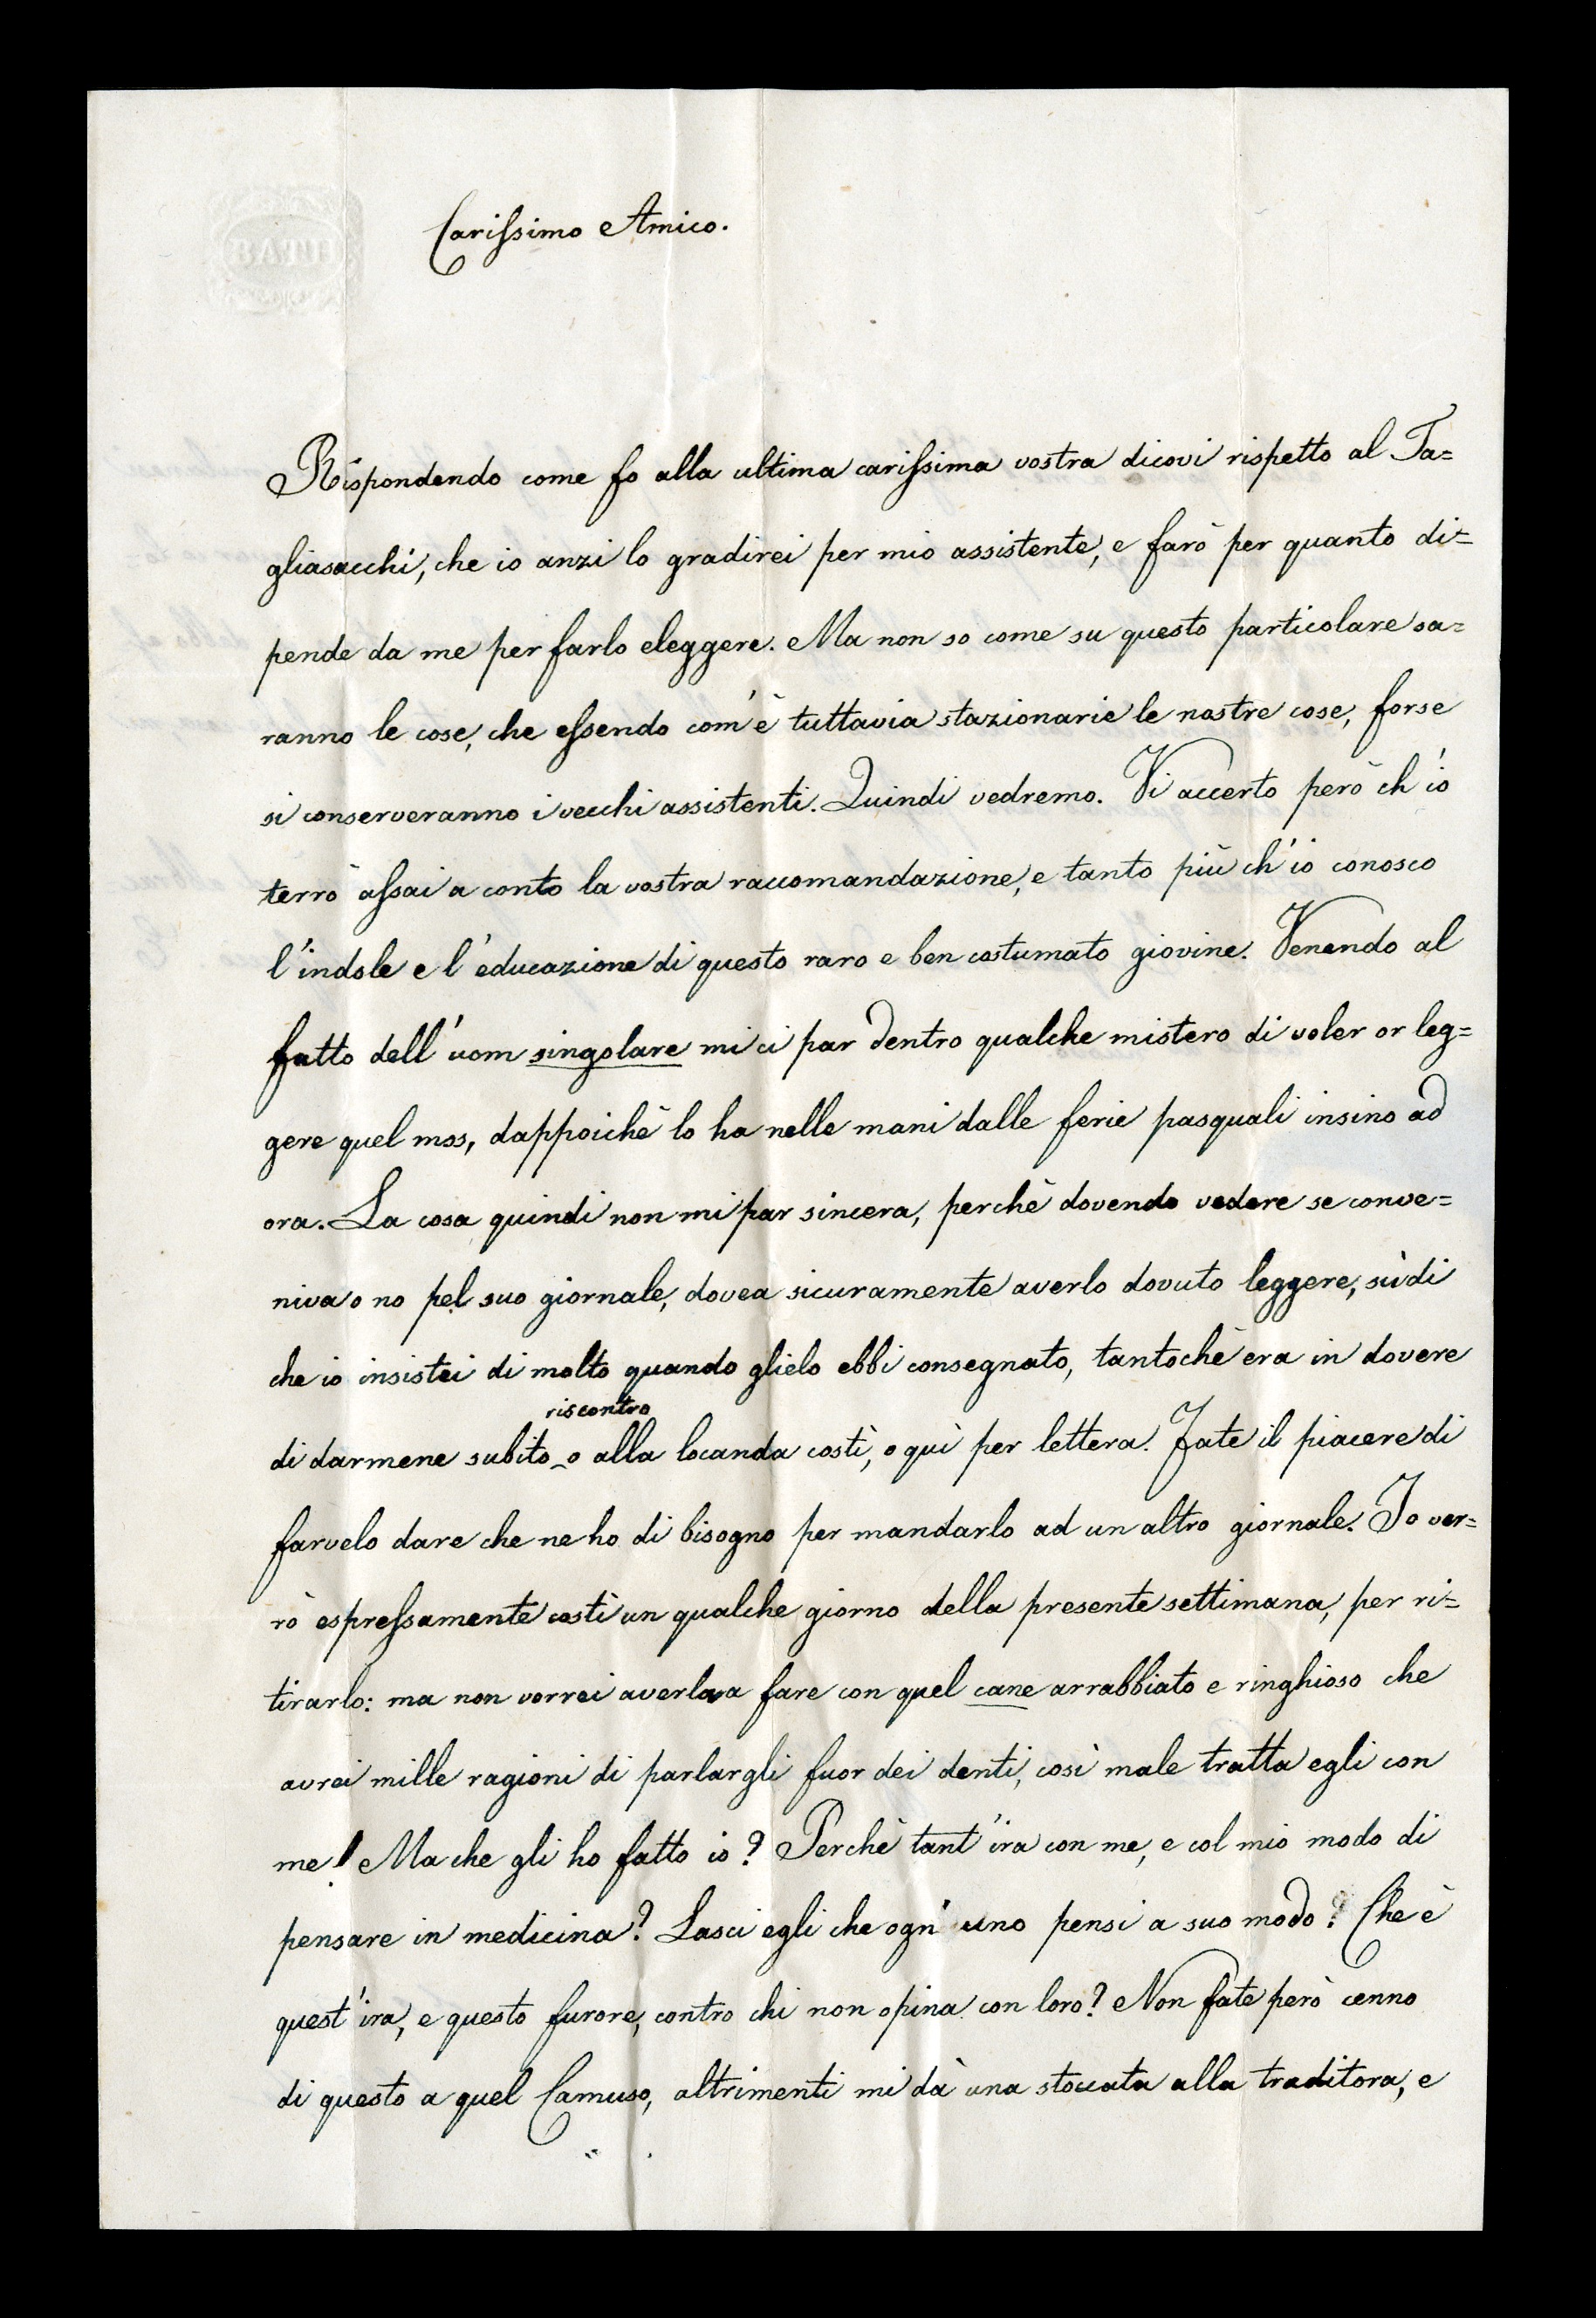 Carissimo Amico.
Rispondendo come fo alla ultima carissima vostra dicovi rispetto al Ta=
gliasacchi, che io anzi lo gradirei per mio assistente, e farò per quanto di=
pende da me per farlo eleggere. Ma non so come su questo particolare sa=
ranno le cose, che essendo com'è tuttavia stazionarie le nostre cose, forse
si conserveranno i vecchi assistenti. Quindi vedremo. Vi accerto però ch'io
terrò assai a conto la vostra raccomandazione, e tanto più ch'io conosco
l'indole e l'educazione di questo raro e ben costumato giovine. Venendo al
fatto dell'uom singolare mi ci par dentro qualche mistero di voler or leg=
gere quel mss, dappoichè lo ha nelle mani dalle ferie pasquali insino ad
ora. La cosa quindi non mi par sincera, perchè dovendo vedere se conve=
niva o no pel suo giornale, dovea sicuramente averlo dovuto leggere, sù di
che io insistei di molto quando glielo ebbi consegnato, tantochè era in dovere
riscontro
di darmene subito o alla locanda costì, o quì per lettera. Fate il piacere di
farvelo dare che ne ho di bisogno per mandarlo ad un altro giornale. Io ver=
rò espressamente costì un qualche giorno della presente settimana, per ri=
tirarlo: ma non vorrei averla a fare con quel cane arrabbiato e ringhioso che
avrei mille ragioni di parlargli fuor dei denti, così male tratta egli con
me! Ma che gli ho fatto io? Perchè tant'ira con me, e col mio modo di
pensare in medicina? Lasci egli che ogn'uno pensi a suo modo? Che è
quest'ira, e questo furore, contro chi non opina con loro? Non fate però cenno
di questo a quel Camuso, altrimenti mi dà una stoccata alla traditora, e